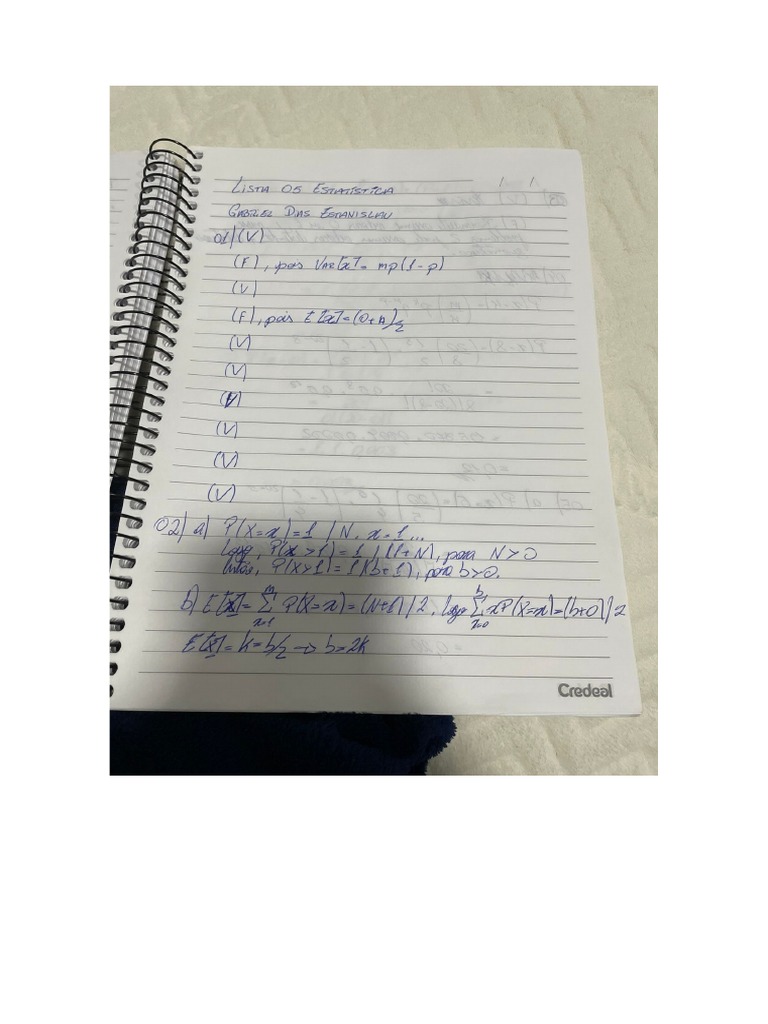 LISTA 05 ESTATÍSTICA
GABRIEL DIAS ESTANISLAU
01) (V)
(F), pois VAR[x] = mp(1-p)
(V)
(F), pois E[x] = (0+n)/2
(V)
(V)
(V)
(V)
(V)
(V)
02) a) P(X=x)=1/N, x=1...
Logo, P(x>1)=1/(1+N), para N>0
Então, P(X>1)=1/(b+1), para b>0.
b) E[X]= m Σ x=1 P(X=x)=(N+1)/2, logo b Σ x=0 xP(X=x)=(b+0)/2
E[X]=k=b/2 → b=2k
Credeal